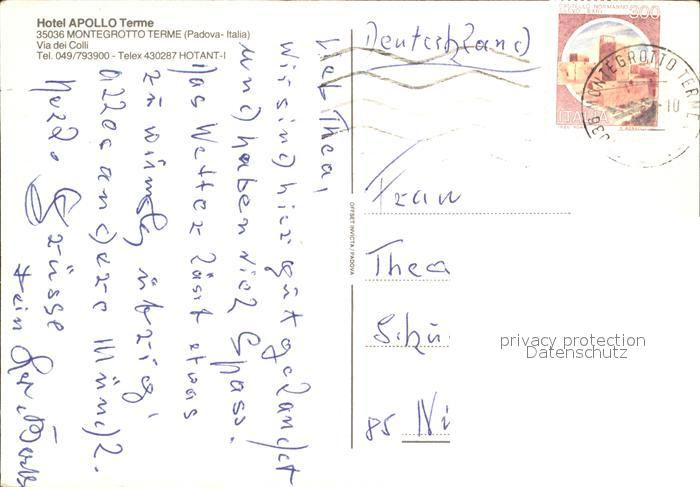 Hotel APOLLO Terme
35036 MONTEGROTTO TERME (Padova- Italia)
Via dei Colli
Tel. 049/793900 - Telex 430287 HOTANT-I
Lieb Thea,
wir sind hier gut gelandet
und haben viel Spass.
Das Wetter lässt etwas
zu wünschen übrig,
alles andere
herzl. Grüsse
Dein
OFFSET INVICTA / PADOVA
Deutschland
CASTELLO NORMANNO
300
ITALIA
036 MONTEGROTTO TERME
10
Frau
Thea
Schü
privacy protection
Datenschutz
85 Nü